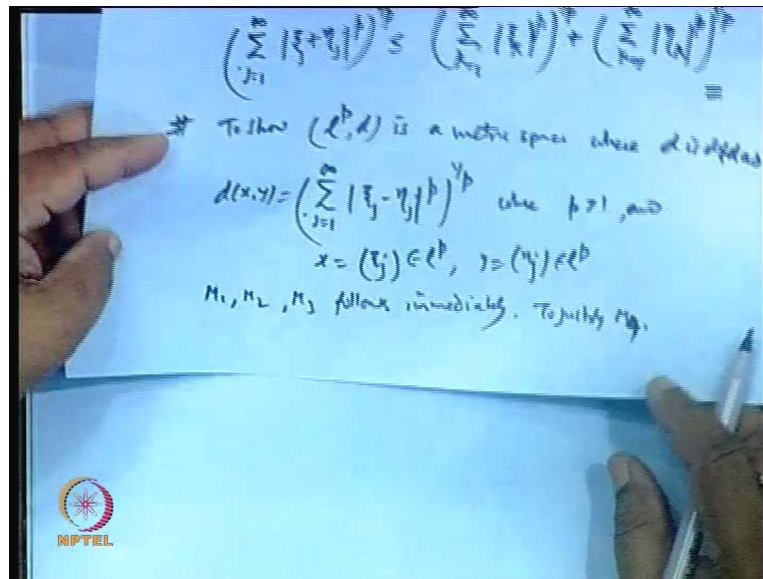 (∑_{j=1}^{∞} |ξ_j+η_j|^p)^{1/p} ≤ (∑_{k=1}^{∞} |ξ_k|^p)^{1/p} + (∑_{m=1}^{∞} |η_m|^p)^{1/p}
# To show (l^p, d) is a metric space where d is defined as
d(x,y) = (∑_{j=1}^{∞} |ξ_j - η_j|^p)^{1/p} where p>1, and
x = (ξ_j) ∈ l^p, y = (η_j) ∈ l^p
M_1, M_2, M_3 follows immediately. To justify M_4.
NPTEL